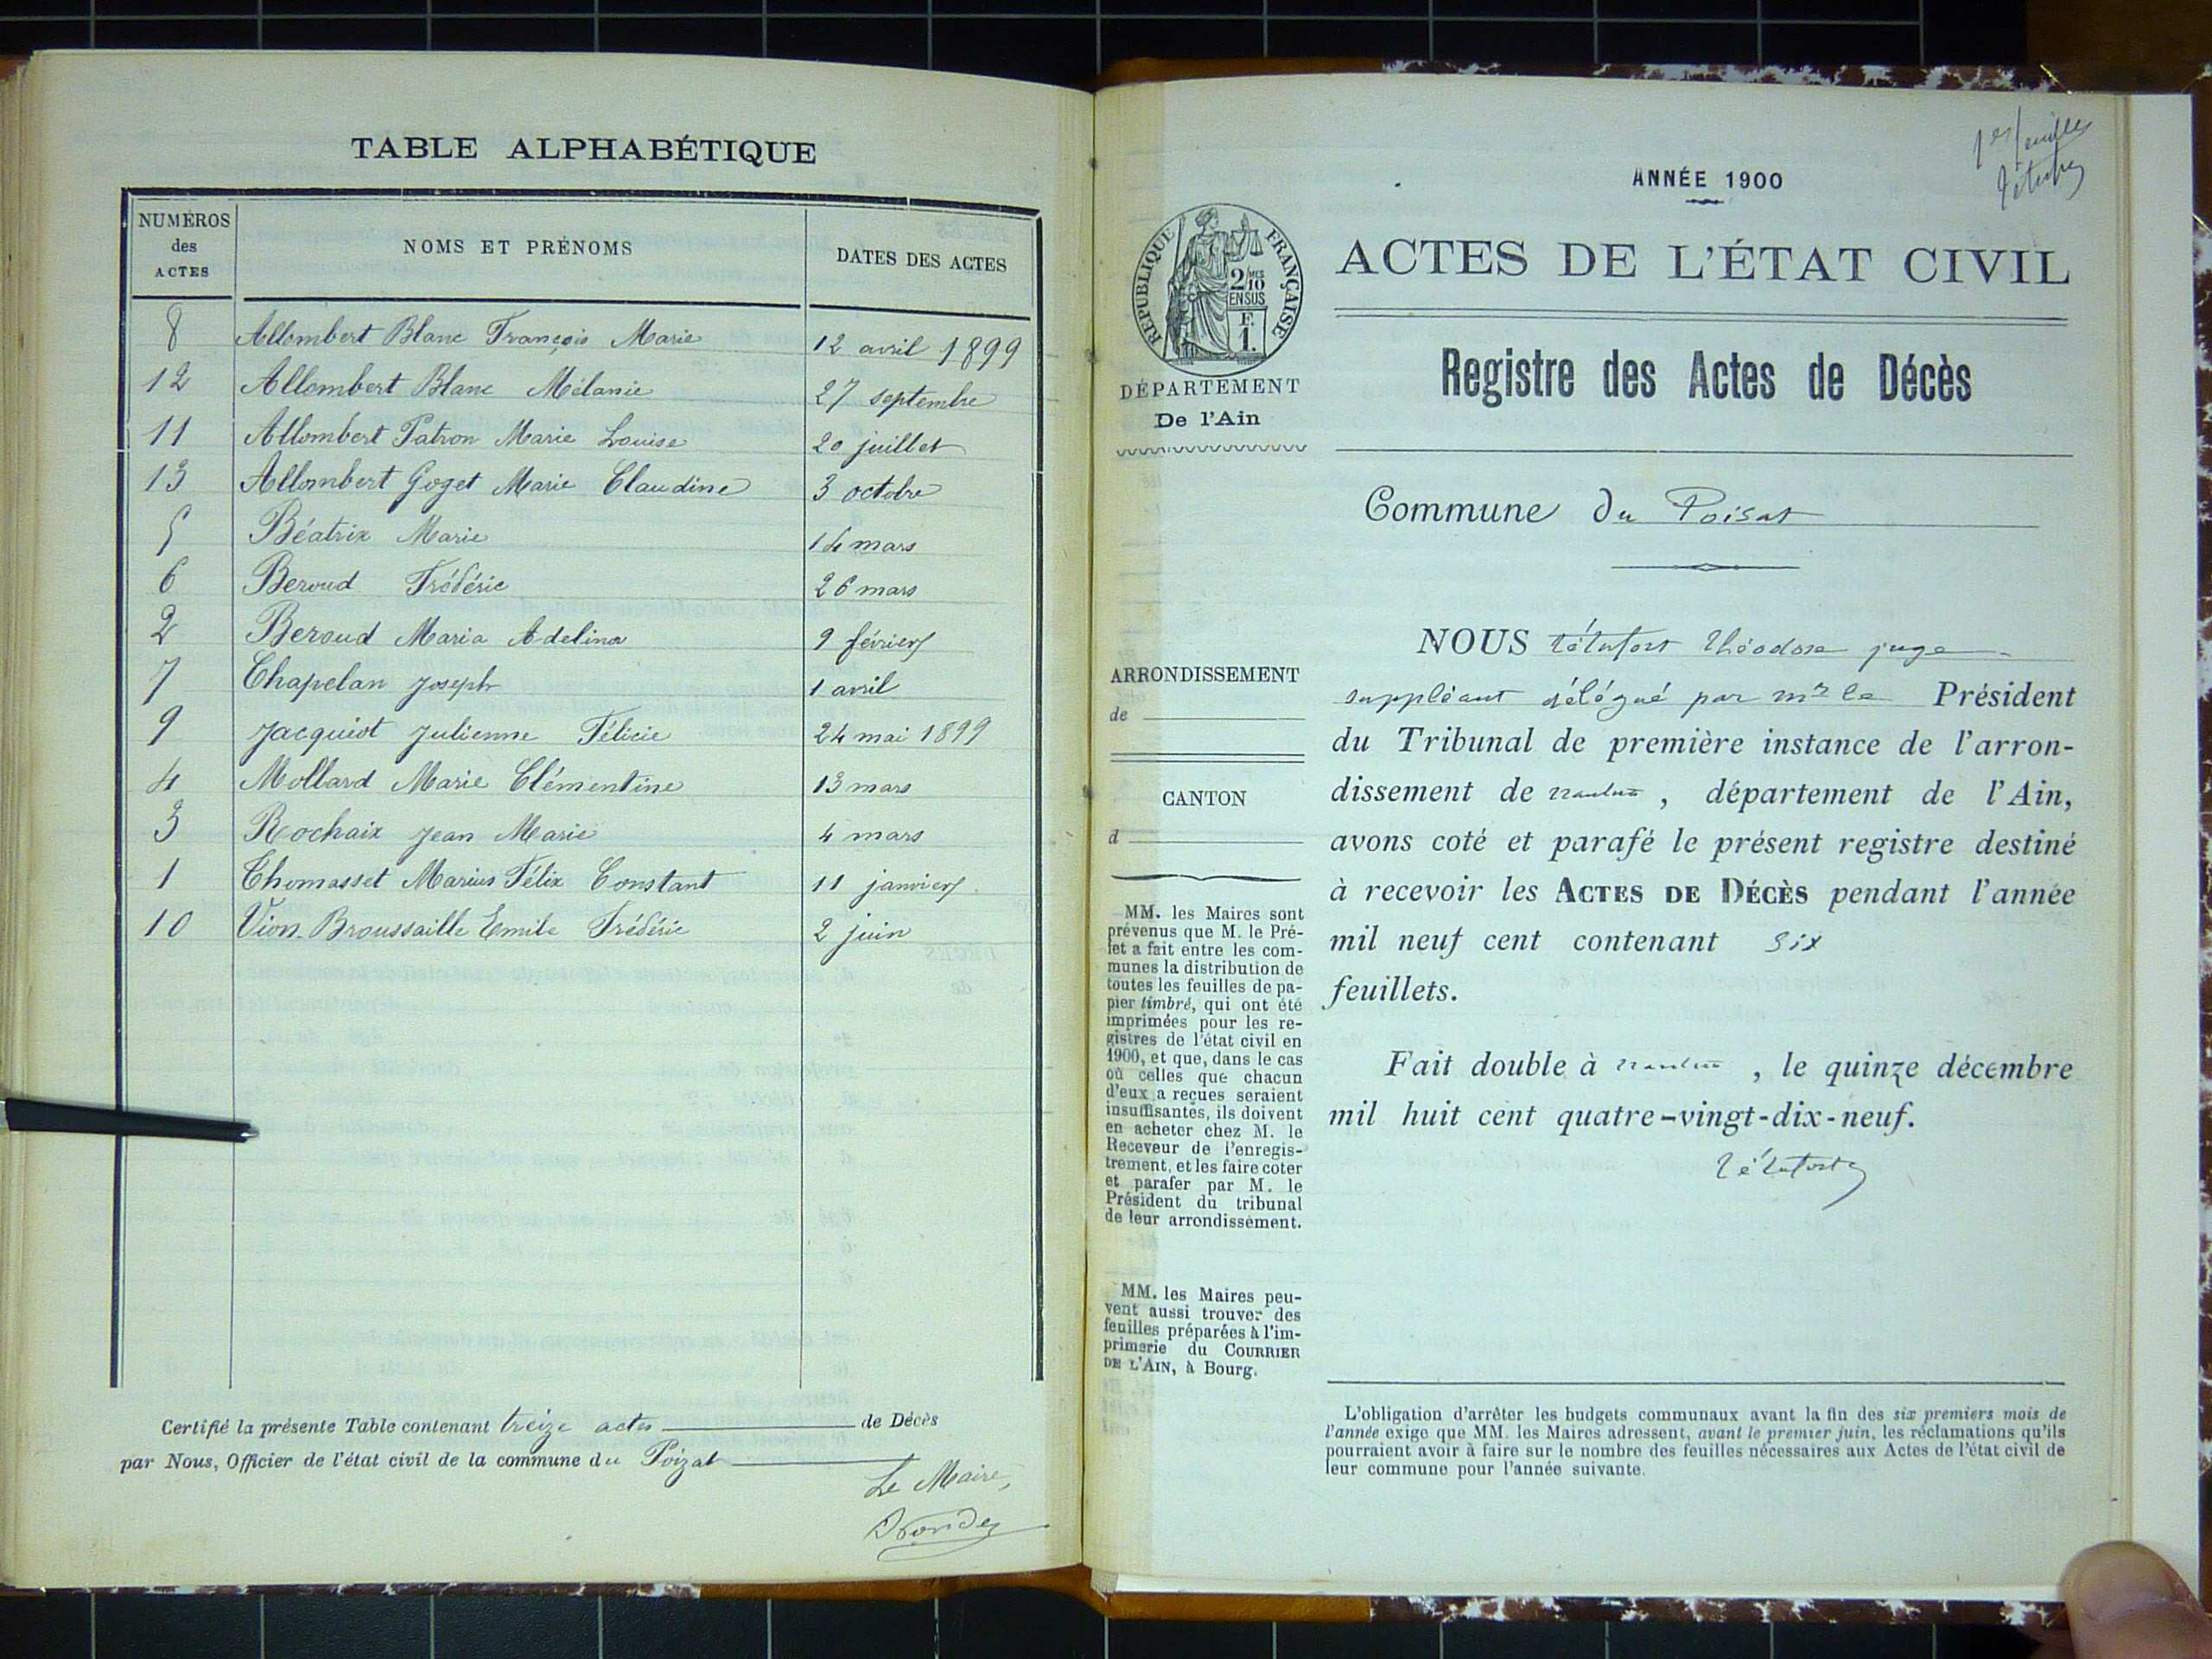 TABLE ALPHABÉTIQUE
NUMÉROS des ACTES
NOMS ET PRÉNOMS
DATES DES ACTES
8 Allombert Blanc François Marie 12 avril 1899
12 Allombert Blanc Mélanie 27 septembre
11 Allombert Patron Marie Louise 20 juillet
13 Allombert Goget Marie Claudine 3 octobre
5 Béatrix Marie 14 mars
6 Beroud Frédéric 26 mars
2 Beroud Maria Adelina 9 février
7 Chapelan Joseph 1 avril
9 Jacquiot Julienne Félicie 24 mai 1899
4 Mollard Marie Clémentine 13 mars
3 Rochaix Jean Marie 4 mars
1 Thomasset Marius Félix Constant 11 janvier
10 Vion-Broussaille Emile Frédéric 2 juin
Certifié la présente Table contenant treize actes de Décès
par Nous, Officier de l'état civil de la commune du Poizat
Le Maire,
1er feuillet
ANNÉE 1900
RÉPUBLIQUE FRANÇAISE
2/10 MES
EN SUS
F.
1.
ACTES DE L'ÉTAT CIVIL
Registre des Actes de Décès
DÉPARTEMENT
De l'Ain
Commune du Poisat
ARRONDISSEMENT
de
CANTON
d
MM. les Maires sont
prévenus que M. le Pré-
fet a fait entre les com-
munes la distribution de
toutes les feuilles de pa-
pier timbré, qui ont été
imprimées pour les re-
gistres de l'état civil en
1900, et que, dans le cas
où celles que chacun
d'eux a reçues seraient
insuffisantes, ils doivent
en acheter chez M. le
Receveur de l'enregis-
trement, et les faire coter
et parafer par M. le
Président du tribunal
de leur arrondissement.
MM. les Maires peu-
vent aussi trouver des
feuilles préparées à l'im-
primerie du COURRIER
DE L'AIN, à Bourg.
NOUS Théodore juge
suppléant délégué par mr le Président
du Tribunal de première instance de l'arron-
dissement de nantua, département de l'Ain,
avons coté et parafé le présent registre destiné
à recevoir les ACTES DE DÉCÈS pendant l'année
mil neuf cent contenant six
feuillets.
Fait double à nantua, le quinze décembre
mil huit cent quatre-vingt-dix-neuf.
L'obligation d'arrêter les budgets communaux avant la fin des six premiers mois de
l'année exige que MM. les Maires adressent, avant le premier juin, les réclamations qu'ils
pourraient avoir à faire sur le nombre des feuilles nécessaires aux Actes de l'état civil de
leur commune pour l'année suivante.